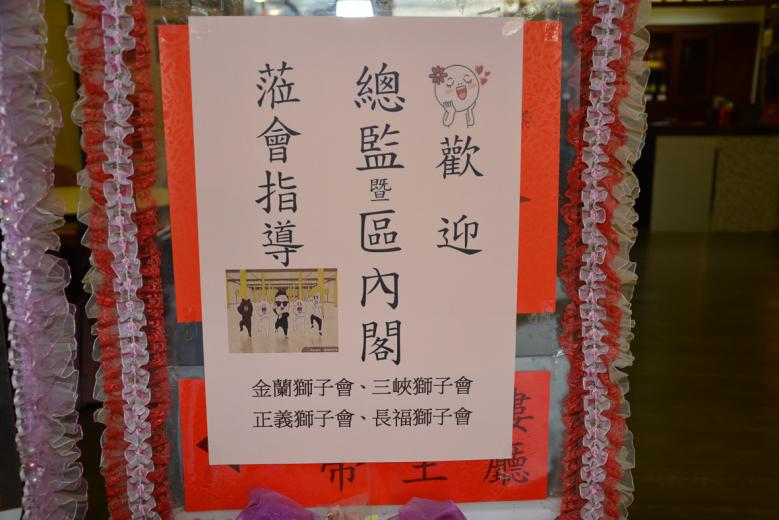 歡迎
總監暨區內閣
蒞會指導
金蘭獅子會、三峽獅子會
正義獅子會、長福獅子會
帝王廳